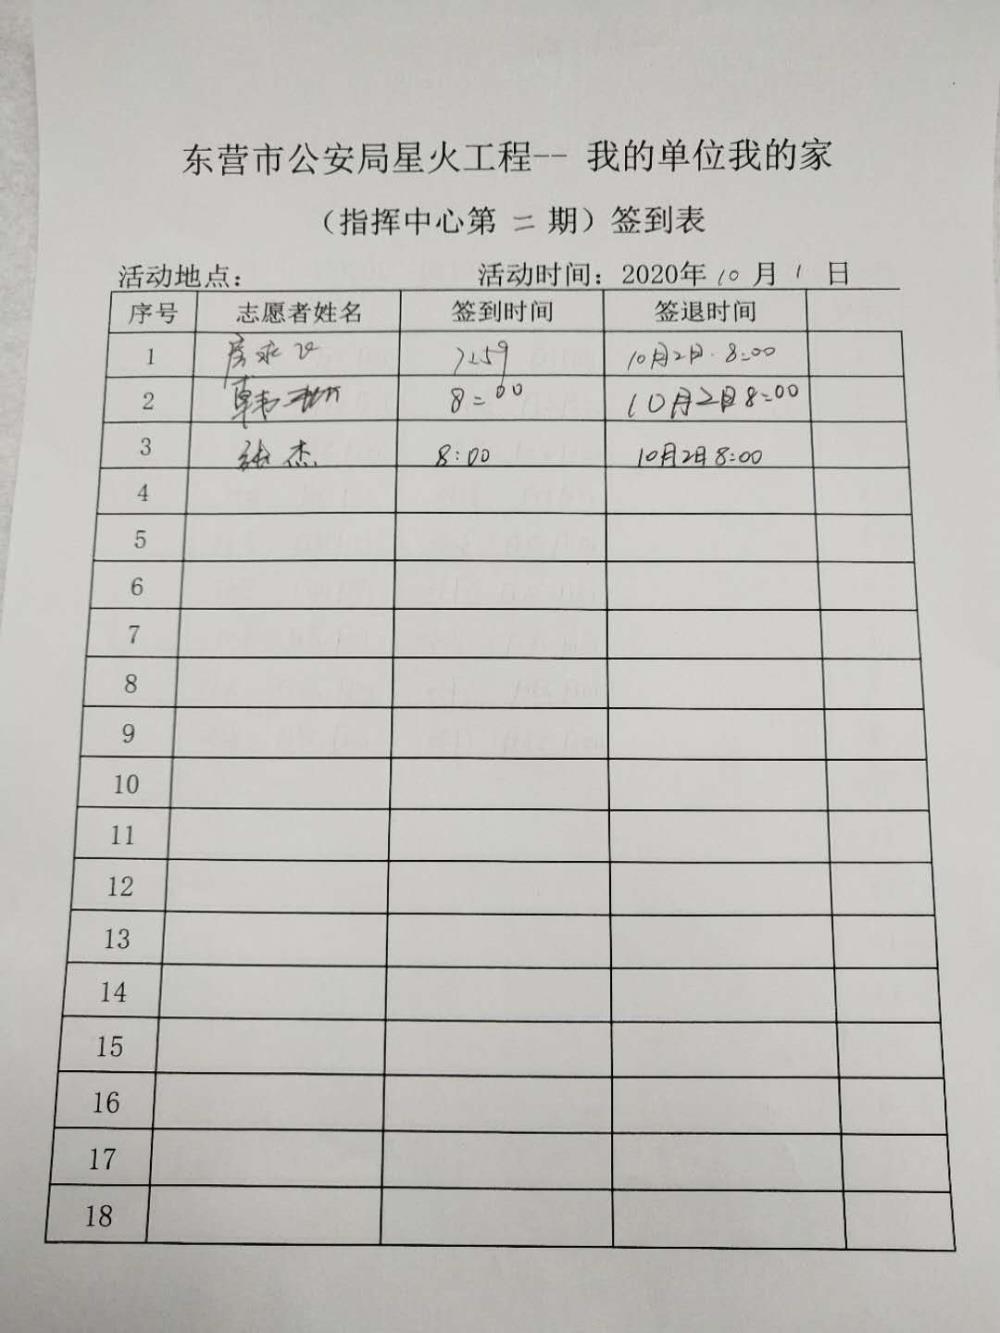 东营市公安局星火工程-- 我的单位我的家
（指挥中心第 二 期）签到表
活动地点： 活动时间：2020年 10 月 1 日
序号 志愿者姓名 签到时间 签退时间
1 7:59 10月2日 8:00
2 韩 8:00 10月2日8:00
3 张杰 8:00 10月2日8:00
4
5
6
7
8
9
10
11
12
13
14
15
16
17
18